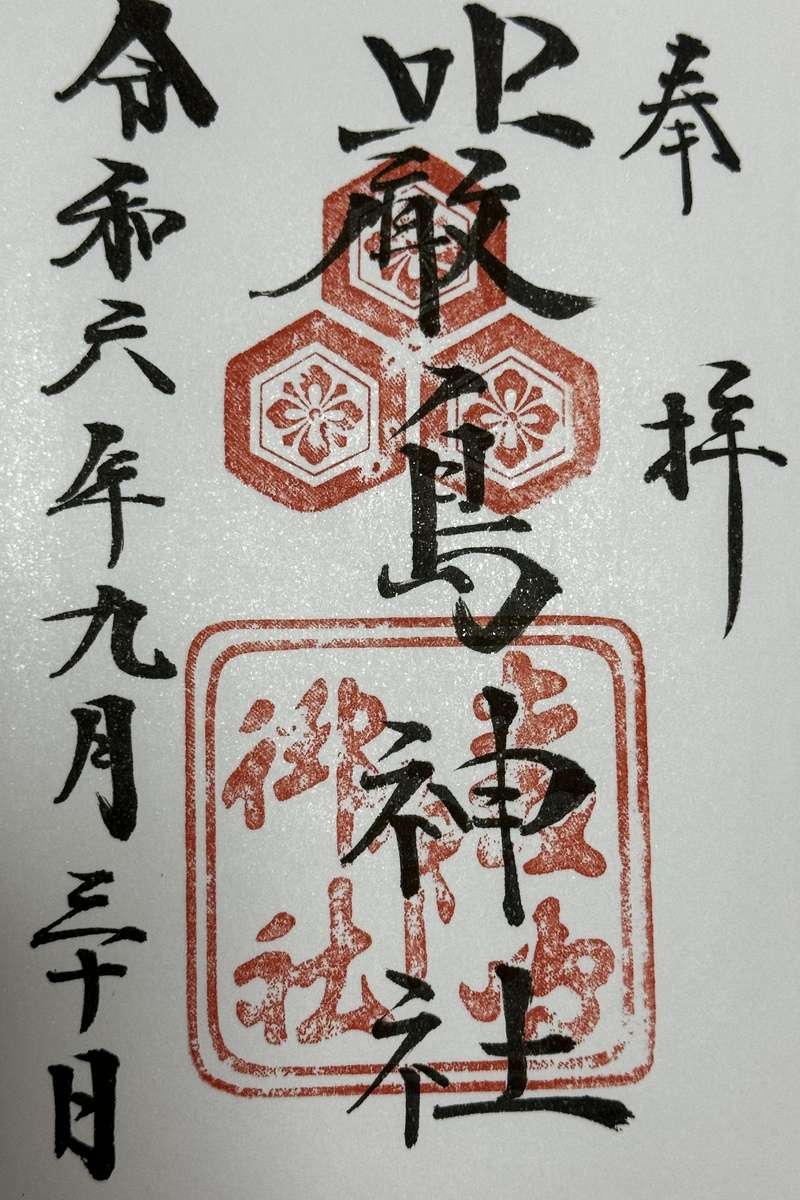 奉拝
嚴島神社
御社
令和六年九月三十日